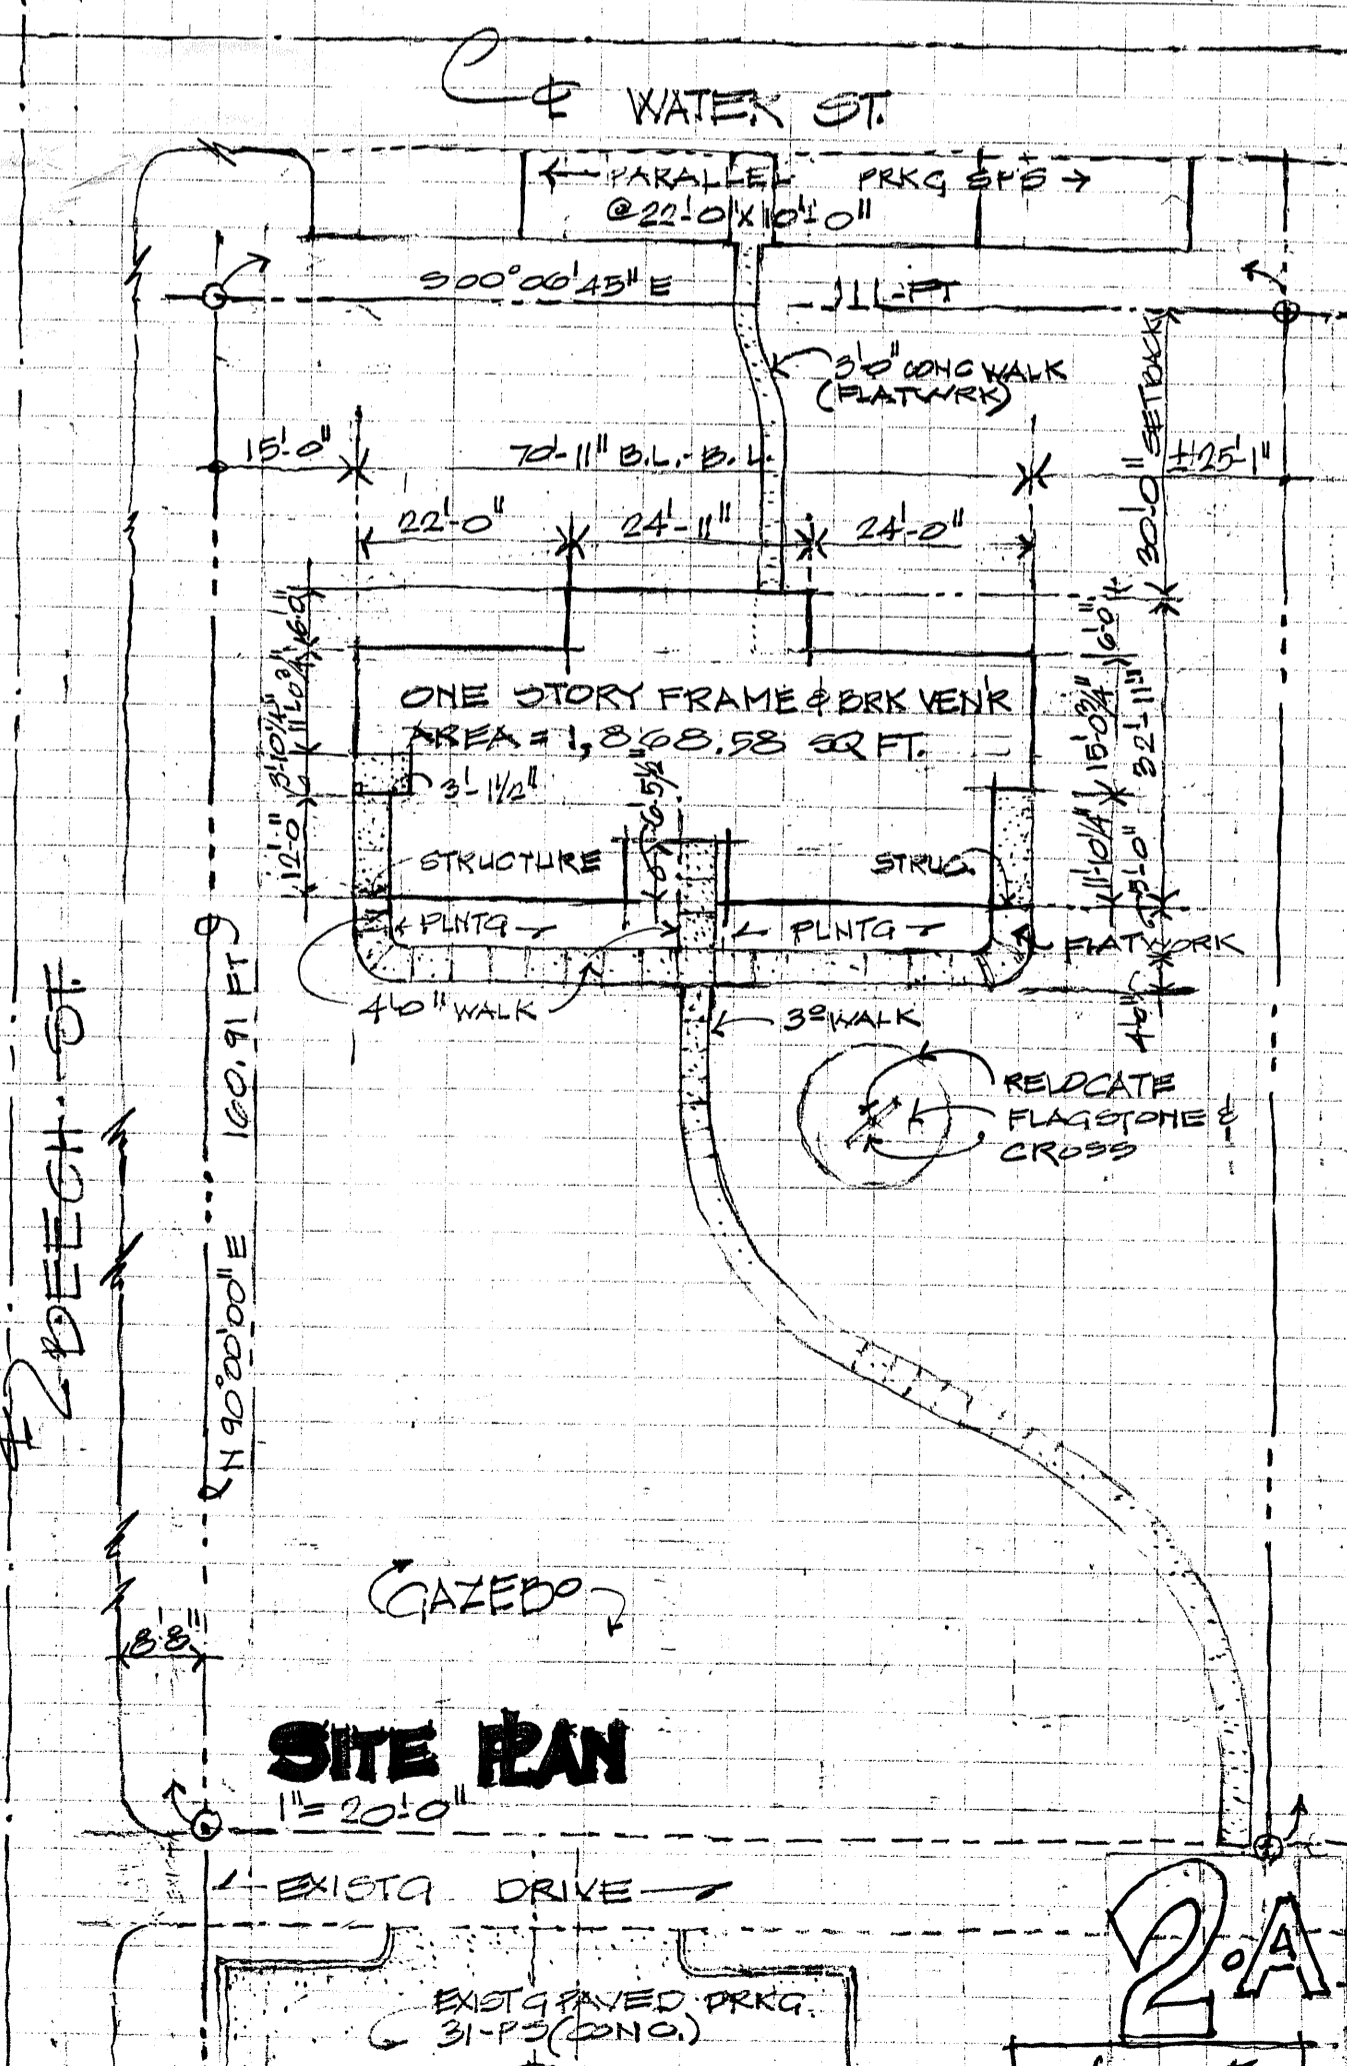 ℄ WATER ST.
← PARALLEL PRKG SPS →
@ 22'-0" X 10'-0"
S 00° 06' 45" E 111-FT
3'-0" CONC WALK
(FLATWRK)
30'-0" SETBACK
15'-0" 70'-11" B.L.-B.L. ±25'-1"
22'-0" 24'-11" 24'-0"
6'-0"
11'-0 3/4"
3'-10 1/4"
12'-0"
6'-0"
15'-0 3/4"
11'-10 1/4"
32'-11"
5'-0"
4'-0"
ONE STORY FRAME & BRK VEN'R
AREA = 1,868.58 SQ FT.
3'-1 1/2"
6'-5 1/2"
STRUCTURE STRUC.
PLNTG PLNTG
FLATWORK
4'-0" WALK
3º WALK
RELOCATE
FLAGSTONE &
CROSS
℄ BEECH ST.
N 90°00'00" E 160.91 FT
GAZEBO
8'-8"
SITE PLAN
1" = 20'-0"
← EXIST'G DRIVE →
EXIST'G PAVED PRKG.
31-PS (CONC.)
2.A